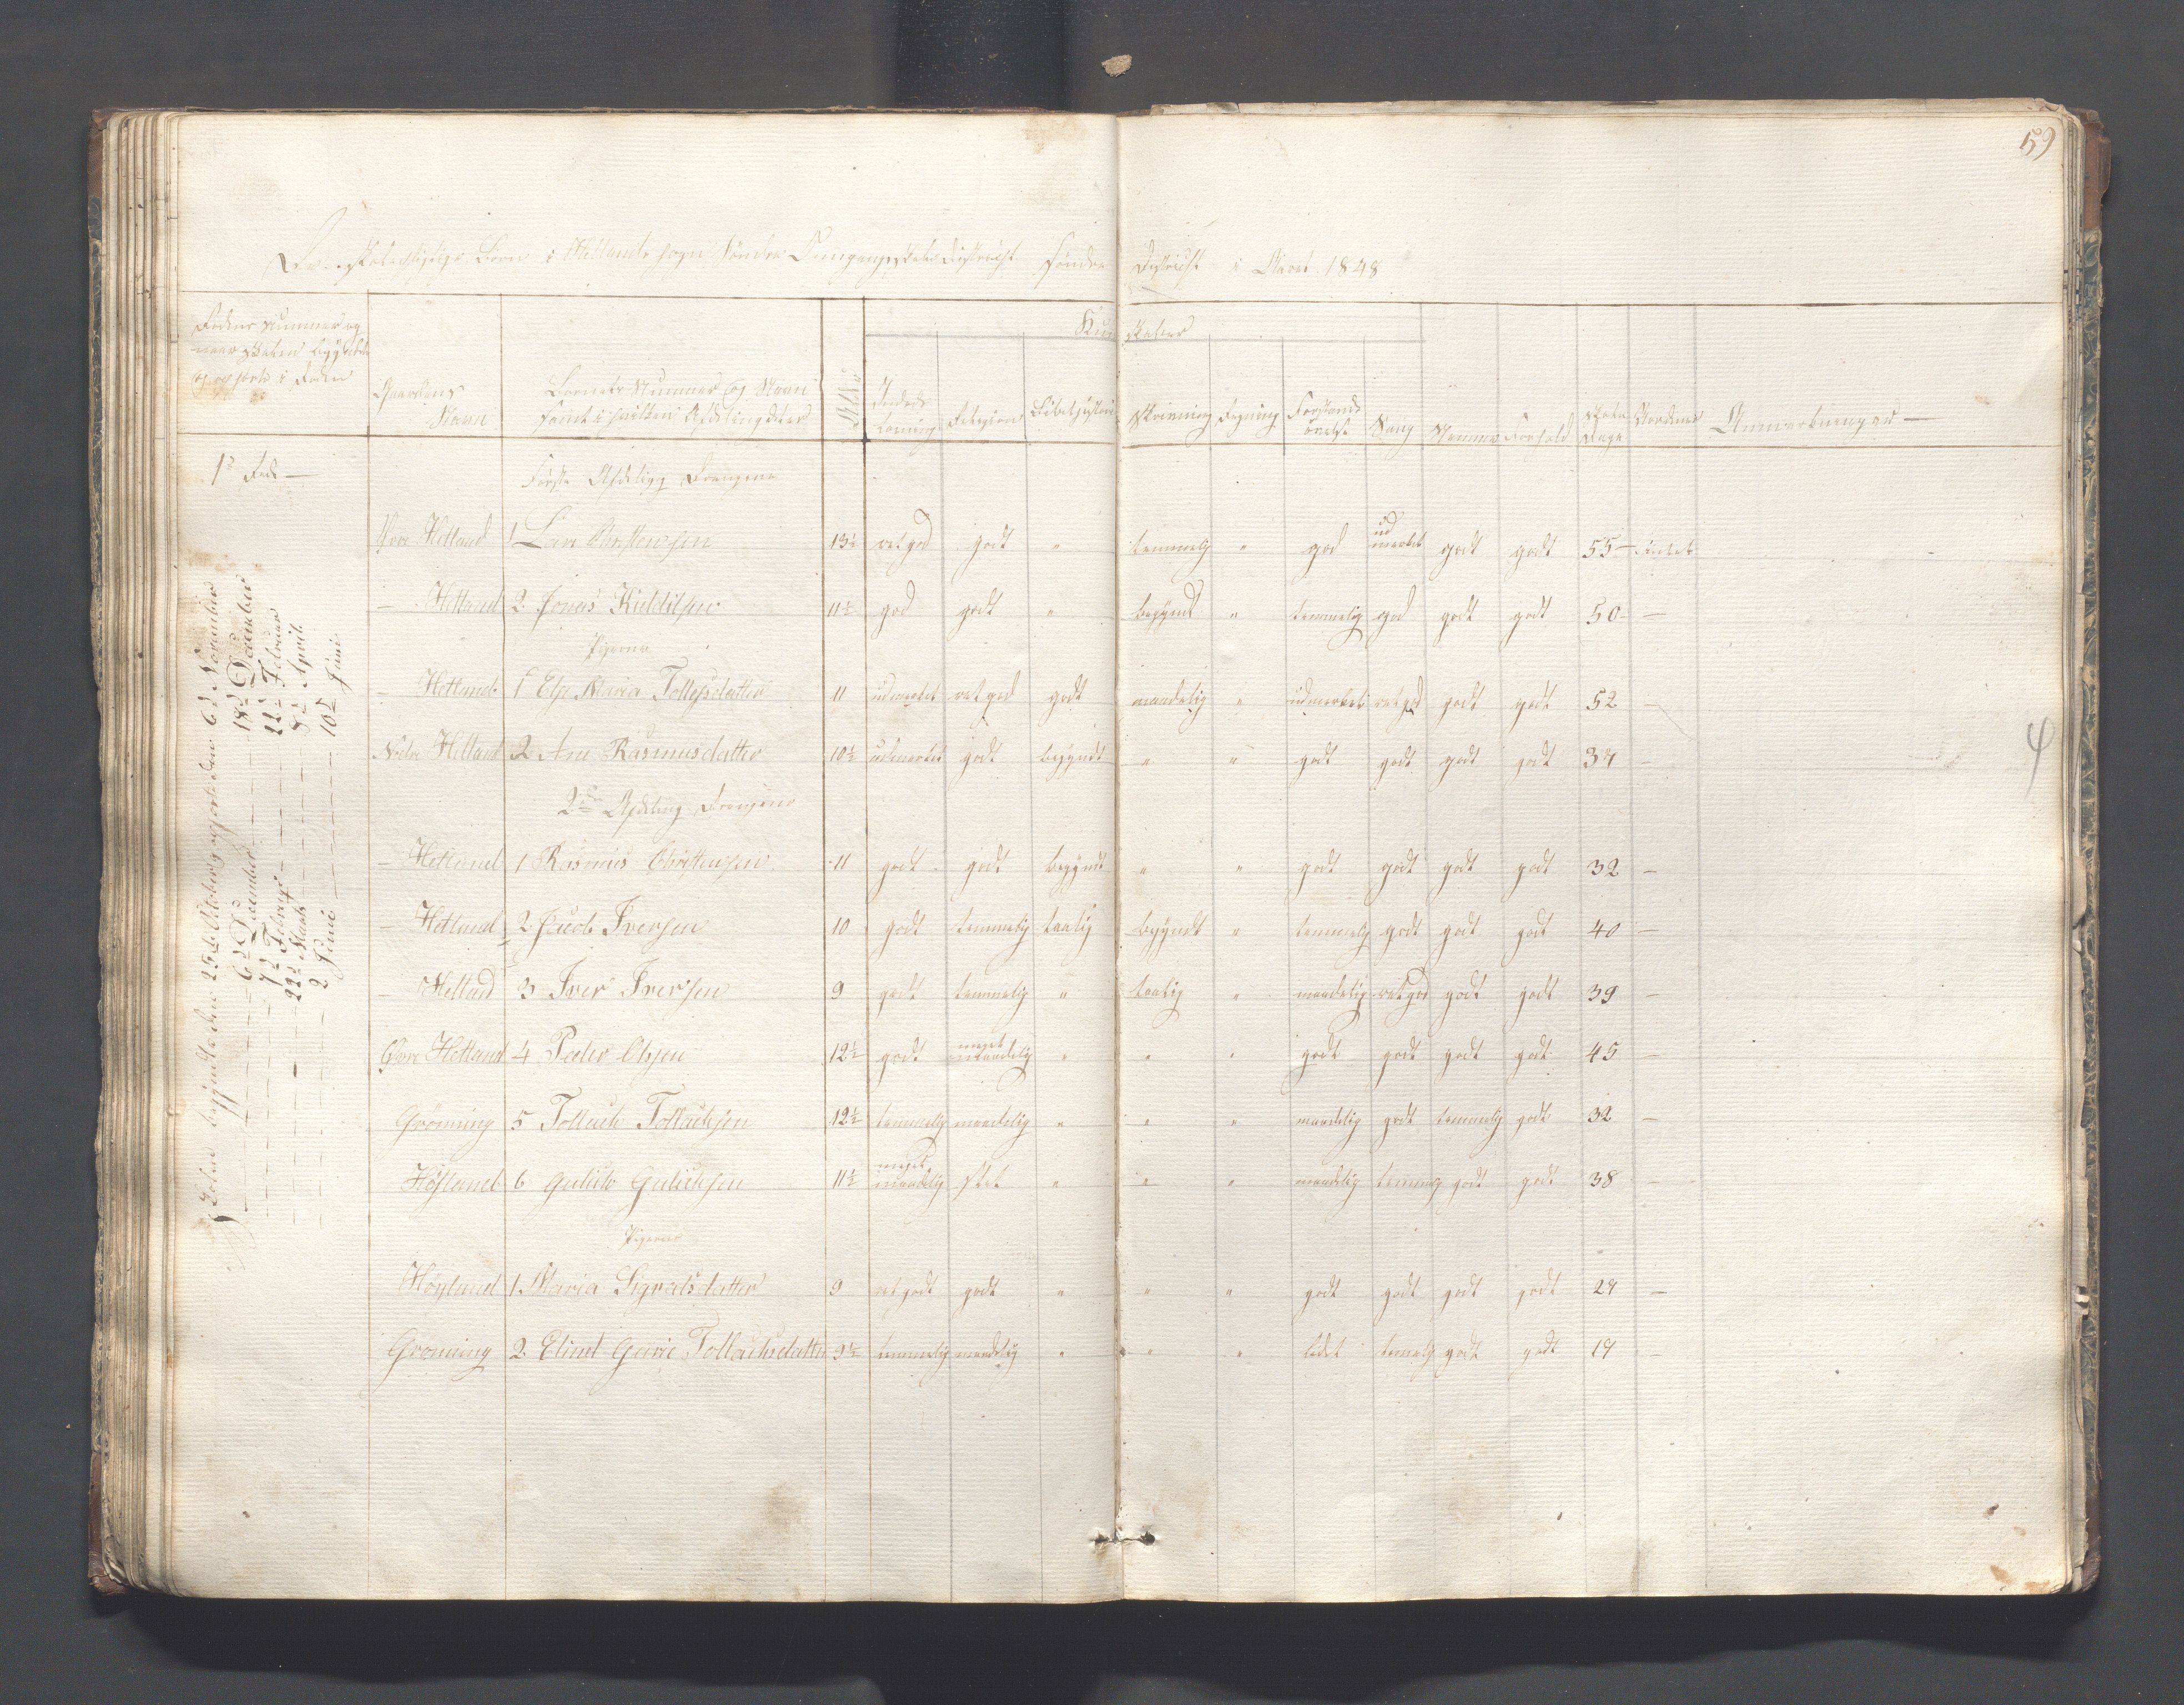 59
Børn i Hetlands sogn Søndre Omgangsskoledistricht Søndre District i Aaret 1848
Rodens Nummer og
naar Skolen begyndte
og ophørte i Roden
Gaardens
Navn
Barnets Nummer og Navn
samt i hvilken Afdeling
Alder
Kundskaber
Indenads
Læsning
Religion
Bibelhistorie
Skrivning
Regning
Forstands
øvelse
Sang
Nemme
Forhold
Skole
Dage
Anmærkninger
1ste Rode —
Første Afdeling Drengene
Øvre Hetland 1 13½ ret god godt " temmelig " god udmærket godt godt 55
— Hetland 2 Jonas Kieldilsen 11½ god godt " begyndt " temmelig god godt godt 50 —
Pigerne
— Hetland 1 Else Maria Tollefsdatter 11 udmærket ret god godt maadelig " udmærket ret god godt godt 52 —
Nedre Hetland 2 Ane Rasmusdatter 10½ udmærket godt begyndt " " godt godt godt godt 34 —
2den Afdeling Drengene
— Hetland 1 Rasmus Christensen 11 godt godt begyndt " " godt godt godt godt 32 —
— Hetland 2 Jacob Iversen 10 godt temmelig taalig begyndt " temmelig godt godt godt 40 —
— Hetland 3 Iver Iversen 9 godt temmelig " taalig " maadelig ret god godt godt 39 —
Øvre Hetland 4 Peder Olsen 12½ godt meget maadelig " " " godt godt godt godt 45 —
Grønning 5 Tollack Tollacksen 12½ temmelig maadelig " " " maadelig godt temmelig godt 32 —
Høyland 6 Gulick Gulicksen 11½ meget maadelig slet " " " maadelig temmelig godt godt 38 —
Pigerne
Høyland 1 Maria Sigvalsdatter 9 ret godt godt " " " godt godt godt godt 24 —
Grønning 2 Elines Gurie Tollacksdatter 9½ temmelig maadelig " " " lidet temmelig godt godt 19 —
Skolen begyndte den 25de October ophørte den 6te November
— 6te December — 18de December
— 7de Februar — 22de Februar
— 22de Marts — 8de April
— 2 Juni — 10de Juni
4